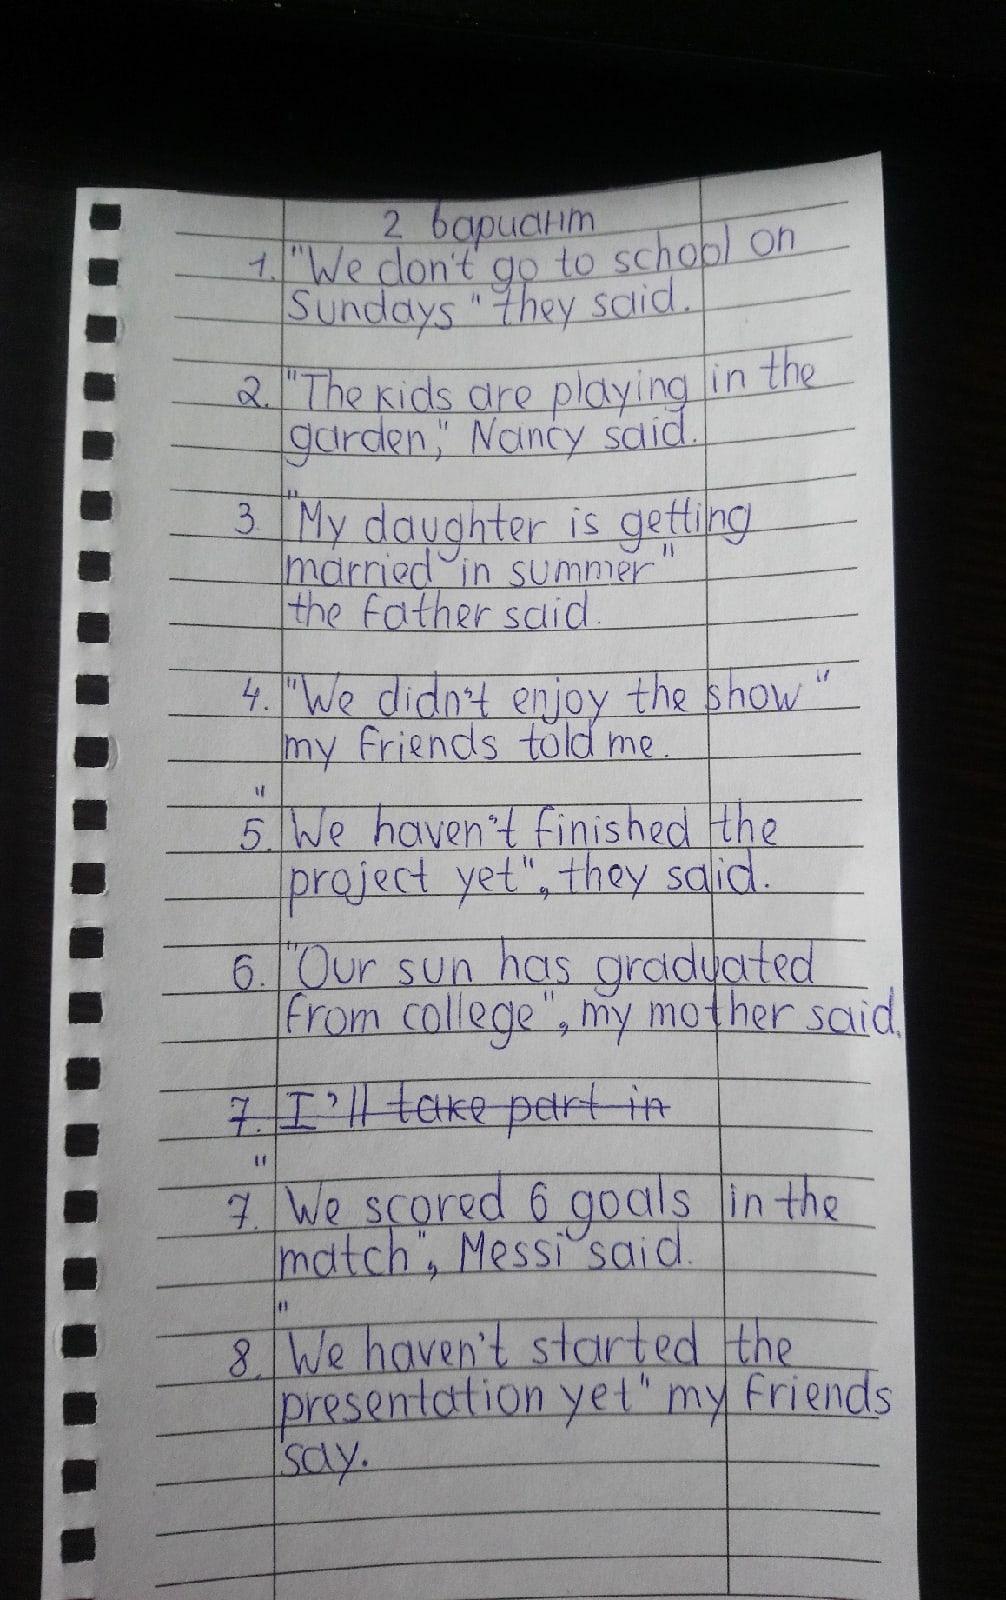 2 вариант
1. "We don't go to school on
Sundays" they said.
2. "The kids are playing in the
garden," Nancy said.
3. "My daughter is getting
married in summer"
the father said.
4. "We didn't enjoy the show"
my friends told me.
"
5. We haven't finished the
project yet", they said.
6. "Our sun has graduated
from college", my mother said.
7. I'll take part in
"
7. We scored 6 goals in the
match", Messi said.
"
8. We haven't started the
presentation yet" my friends
say.